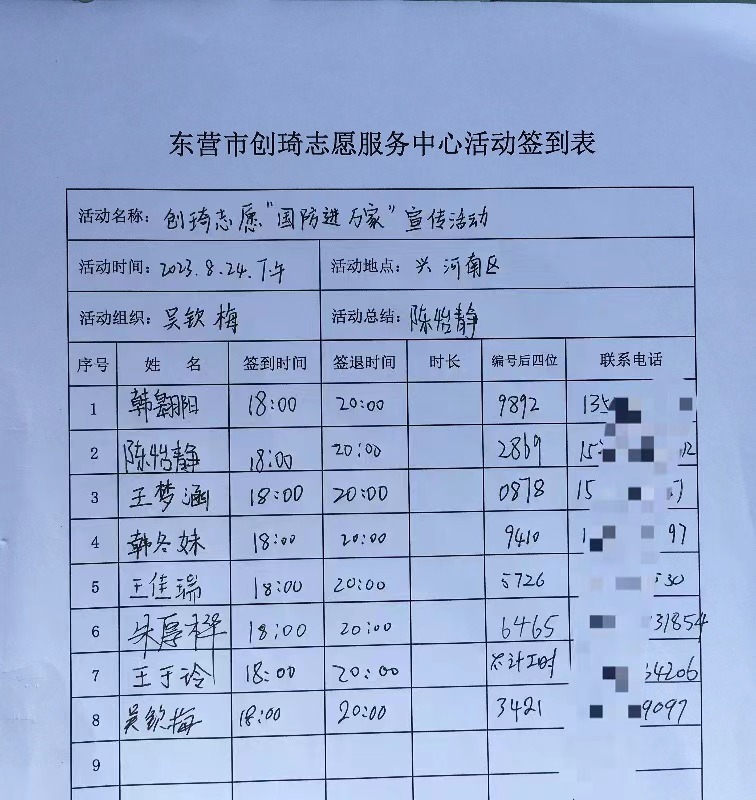 东营市创琦志愿服务中心活动签到表
活动名称：创琦志愿“国防进万家”宣传活动
活动时间：2023.8.24.下午 活动地点：兴河南区
活动组织：吴钦梅 活动总结：陈怡静
序号 姓名 签到时间 签退时间 时长 编号后四位 联系电话
1 韩翱阳 18:00 20:00 9892 135
2 陈怡静 18:00 20:00 2869 15
3 王梦涵 18:00 20:00 0878 15
4 韩冬妹 18:00 20:00 9410 1 97
5 王佳瑞 18:00 20:00 5726 530
6 厚祥 18:00 20:00 6465 31854
7 王于玲 18:00 20:00 不计工时 34206
8 吴钦梅 18:00 20:00 3421 9097
9